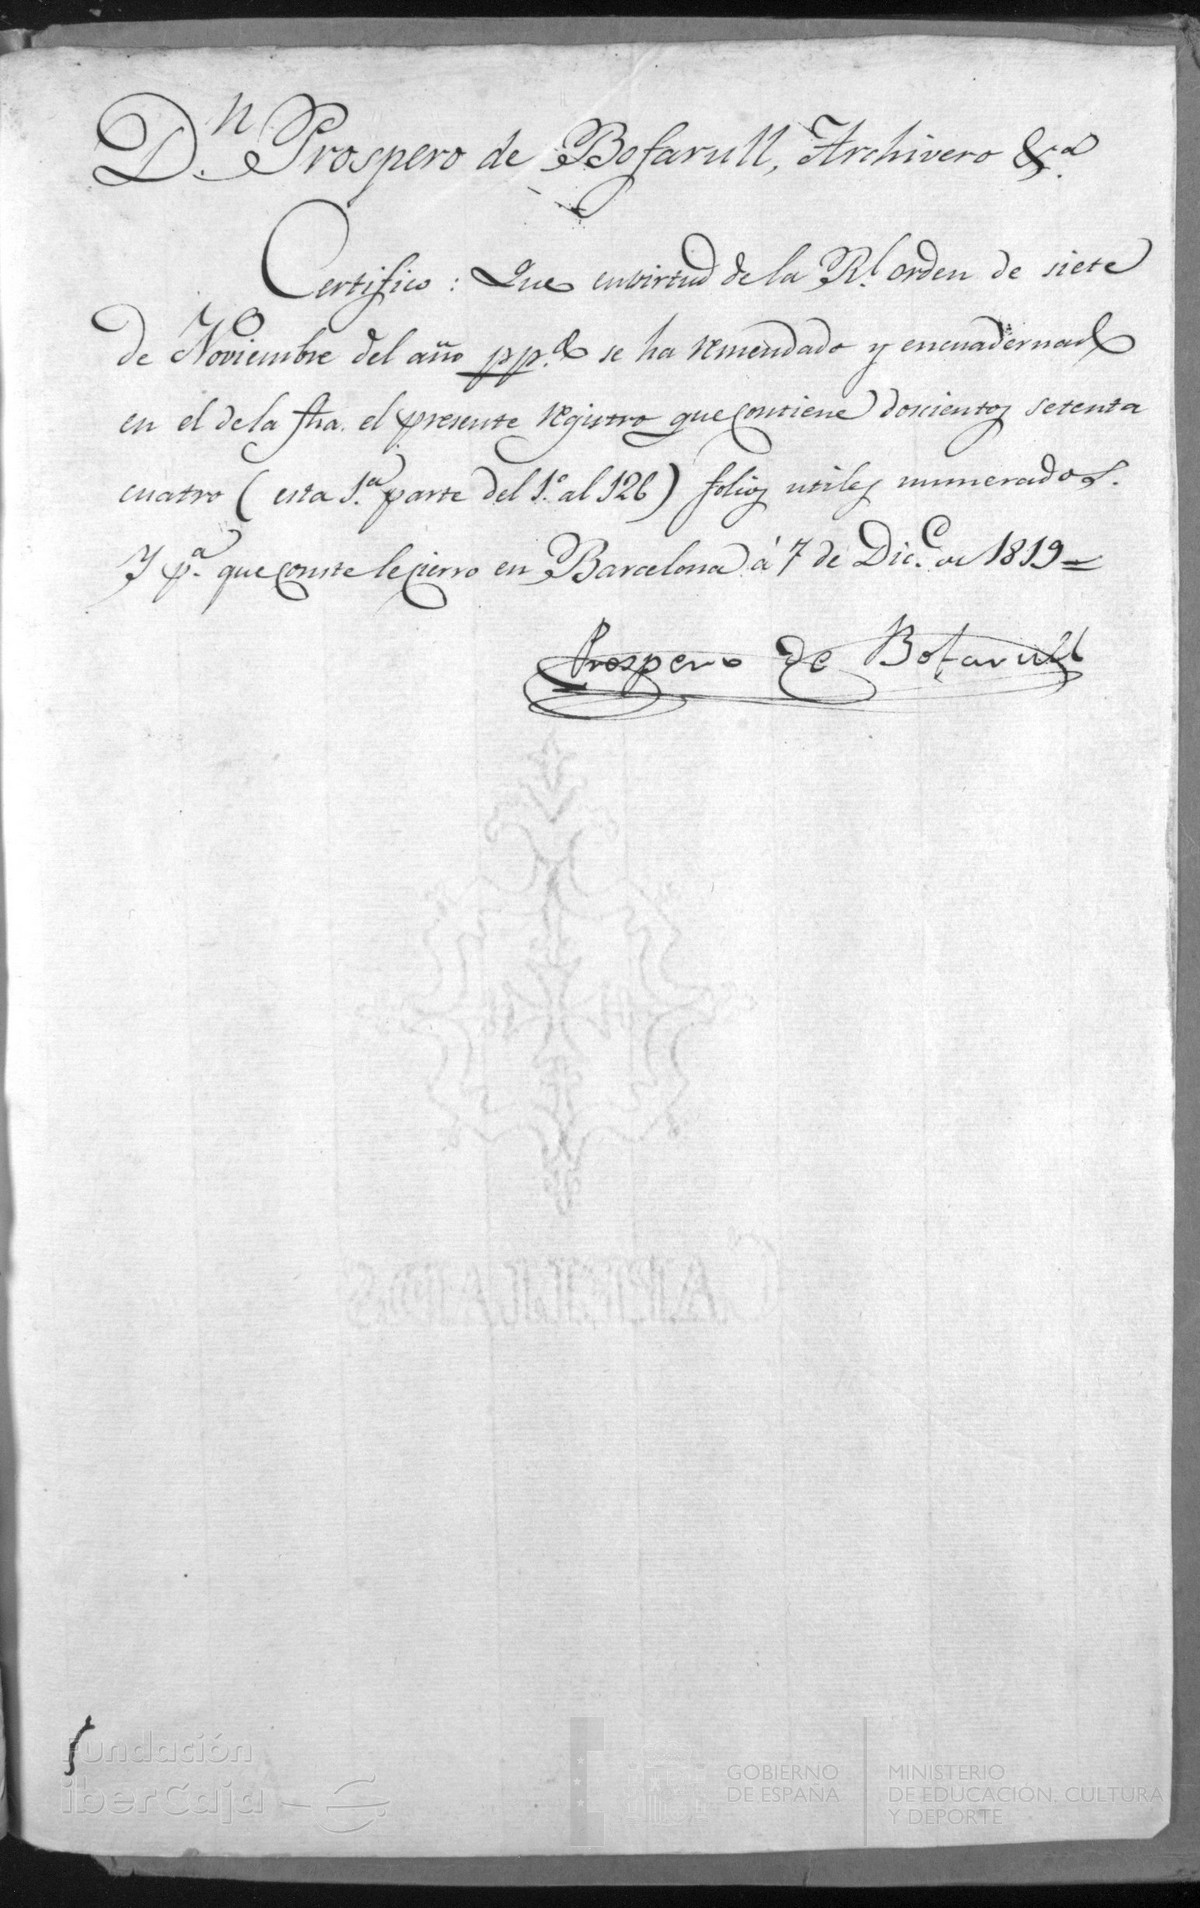 D.n Prospero de Bofarull, Archivero &.a
Certifico: Que en virtud de la R.l orden de siete
de Noviembre del año pp.do se ha remendado y encuadernado
en el de la fha. el presente registro que contiene doscientos setenta
cuatro (esta 1.a parte del 1.o al 126) folios utiles numerados.
Y p.a que conste le cierro en Barcelona á 7 de Dic.e de 1819=
Prospero de Bofarull
CAPELLADES
Fundación
iberCaja
GOBIERNO
DE ESPAÑA
MINISTERIO
DE EDUCACIÓN, CULTURA
Y DEPORTE